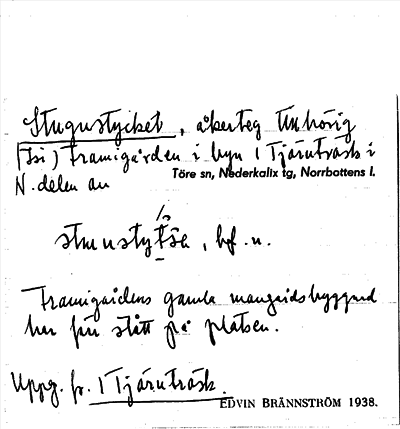 Stugustycket, åkerteg tillhörig
(Isi) Framigården i byn 1 Tjärnträsk i
N. delen av Töre sn, Nederkalix tg, Norrbottens l.
stuustytsa, bf. n.
Framigårdens gamla mangårdsbyggnad
har förr stått på platsen.
Uppg. fr. 1 Tjärnträsk.
EDVIN BRÄNNSTRÖM 1938.